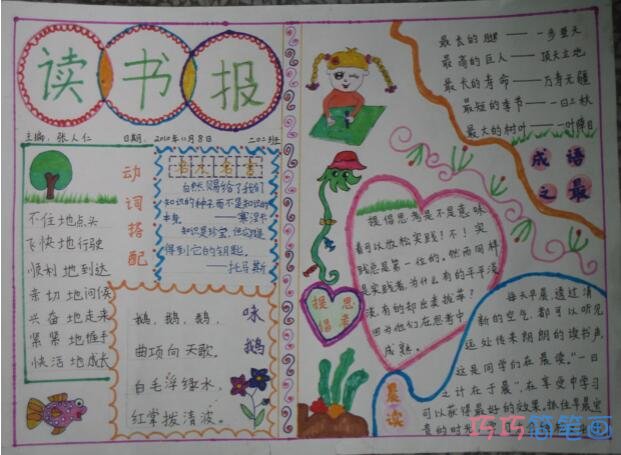 读书报
主编：张人仁 日期：2010年11月8日 二○二班
动词搭配
不住地点头
飞快地行驶
顺利地到达
亲切地问候
兴奋地走来
紧紧地握手
快活地成长
名人名言
自然赐给了我们
知识的种子而不是知识的
本身 ——塞涅卡
知识是珍宝，但实践
得到它的钥匙。
——托马斯
咏鹅
鹅，鹅，鹅，
曲项向天歌。
白毛浮绿水，
红掌拨清波。
最长的腿——一步登天
最高的巨人——顶天立地
最长的寿命——万寿无疆
最短的季节——一日三秋
最大的树叶——一叶障目
成语之最
提倡思考
提倡思考是不是意味
着可以放松实践？不！实
践总是第一位的。然而同样
是实践者，为什么有的平平淡
淡，有的却出类拔萃？
因为他们在思考中
成熟。
晨读
每天早晨透过清
新的空气，都可以听见
远处传来朗朗的读书声，
这是同学们在晨读。"一日
之计在于晨"，在享受中学习
可以获得最好的效果，抓住早晨宝
贵的时光，
巧巧简笔画